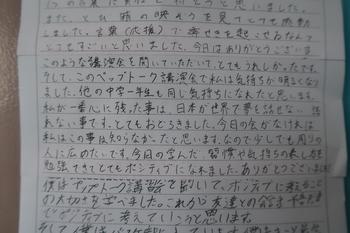 つの言葉に責任と持とうと思いました。
また、とび箱の映ぞうを見てとても感動
しました。言葉(応援)で奇せきを起こせるなんて
とてもすごいと思いました。今日はありがとうございま
このような講演会を聞いていただいて、とてもうれしかったです。
そして、このペップトーク講演会で私は気持ちが明るくなり
ました。他の中学一年生も同じ気持ちになれたと思います。
私が一番心に残った事は、日本が世界で夢を話せない
れない事です。とてもおどろきました。今日の会がなければ
私はこの事は知らなかったと思います。なので少しでも周りの
人に広めたいです。今日の学んだ、習慣や気持ちの表し方を
勉強できてとてもポジティブになれました。ありがとうございました
僕はペップトーク講習を聞いて、ポジティブに考えること
の大切さを学べました。これから友達との会話や
でポジティブに考えていこうと思います。